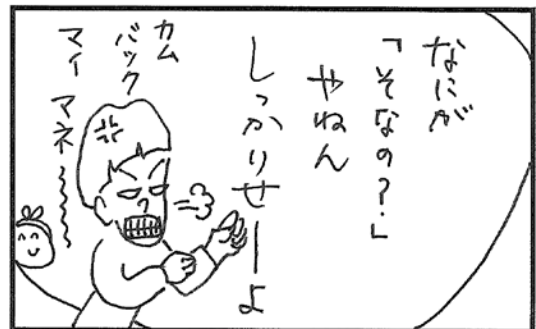 なにが
「そなの?」
やねん
しっかりせーよ
カム
バック
マイ マネ〜〜